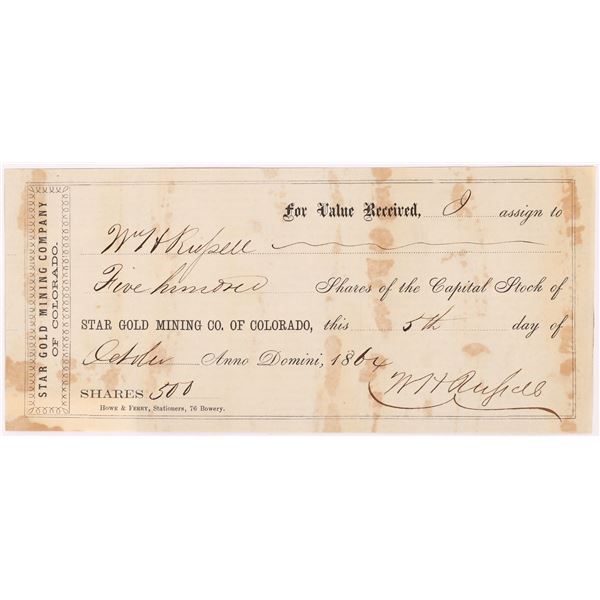 STAR GOLD MINING COMPANY
OF COLORADO.
For Value Received, I assign to
Wm H Russell
Five hundred Shares of the Capital Stock of
STAR GOLD MINING CO. OF COLORADO, this 5th day of
October Anno Domini, 1864
SHARES 500 W H Russell
HOWE & FERRY, Stationers, 76 Bowery.